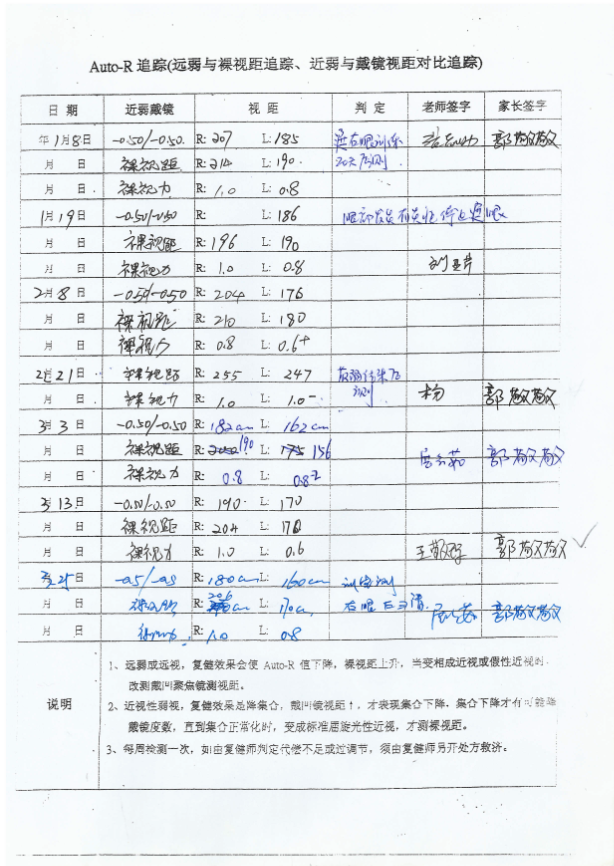 Auto-R 追踪(远弱与裸视距追踪、近弱与戴镜视距对比追踪)
日 期 近弱戴镜 视 距 判 定 老师签字 家长签字
年 1月8日 -0.50/-0.50. R: 207 L: 185 郭敬敬
月 日 裸视距 R: 214 L: 190.
月 日 裸视力 R: 1.0 L: 0.8
1月19日 -0.50/-0.50 R: L: 186
月 日 裸视距 R: 196 L: 190
月 日 裸视力 R: 1.0 L: 0.8
2月8日 -0.50/-0.50 R: 204 L: 176
月 日 裸视距 R: 210 L: 180
月 日 裸视力 R: 0.8 L: 0.6+
2月21日 裸视距 R: 255 L: 247
月 日 裸视力 R: 1.0 L: 1.0-
3月3日 -0.50/-0.50 R: 182cm L: 162cm
月 日 裸视距 R: 190 L: 156
月 日 裸视力 R: 0.8 L: 0.8²
3月13日 -0.50/-0.50 R: 190. L: 170
月 日 裸视距 R: 204 L: 170
月 日 裸视力 R: 1.0 L: 0.6
3月25日 -0.5/-0.5 R: 180cm L: 160cm
月 日 裸视距 R: 206 cm L: 170cm
月 日 裸视力 R: 1.0 L: 0.8
说明
1、远弱或远视，复健效果会使 Auto-R 值下降，裸视距上升，当变相成近视或假性近视时，
改测戴凹聚焦镜测视距。
2、近视性弱视，复健效果是降集合，戴凹镜视距↑，才表现集合下降。集合下降才有可能降
戴镜度数，直到集合正常化时，变成标准屈旋光性近视，才测裸视距。
3、每周检测一次，如由复健师判定代偿不足或过调节，须由复健师另开处方救济。